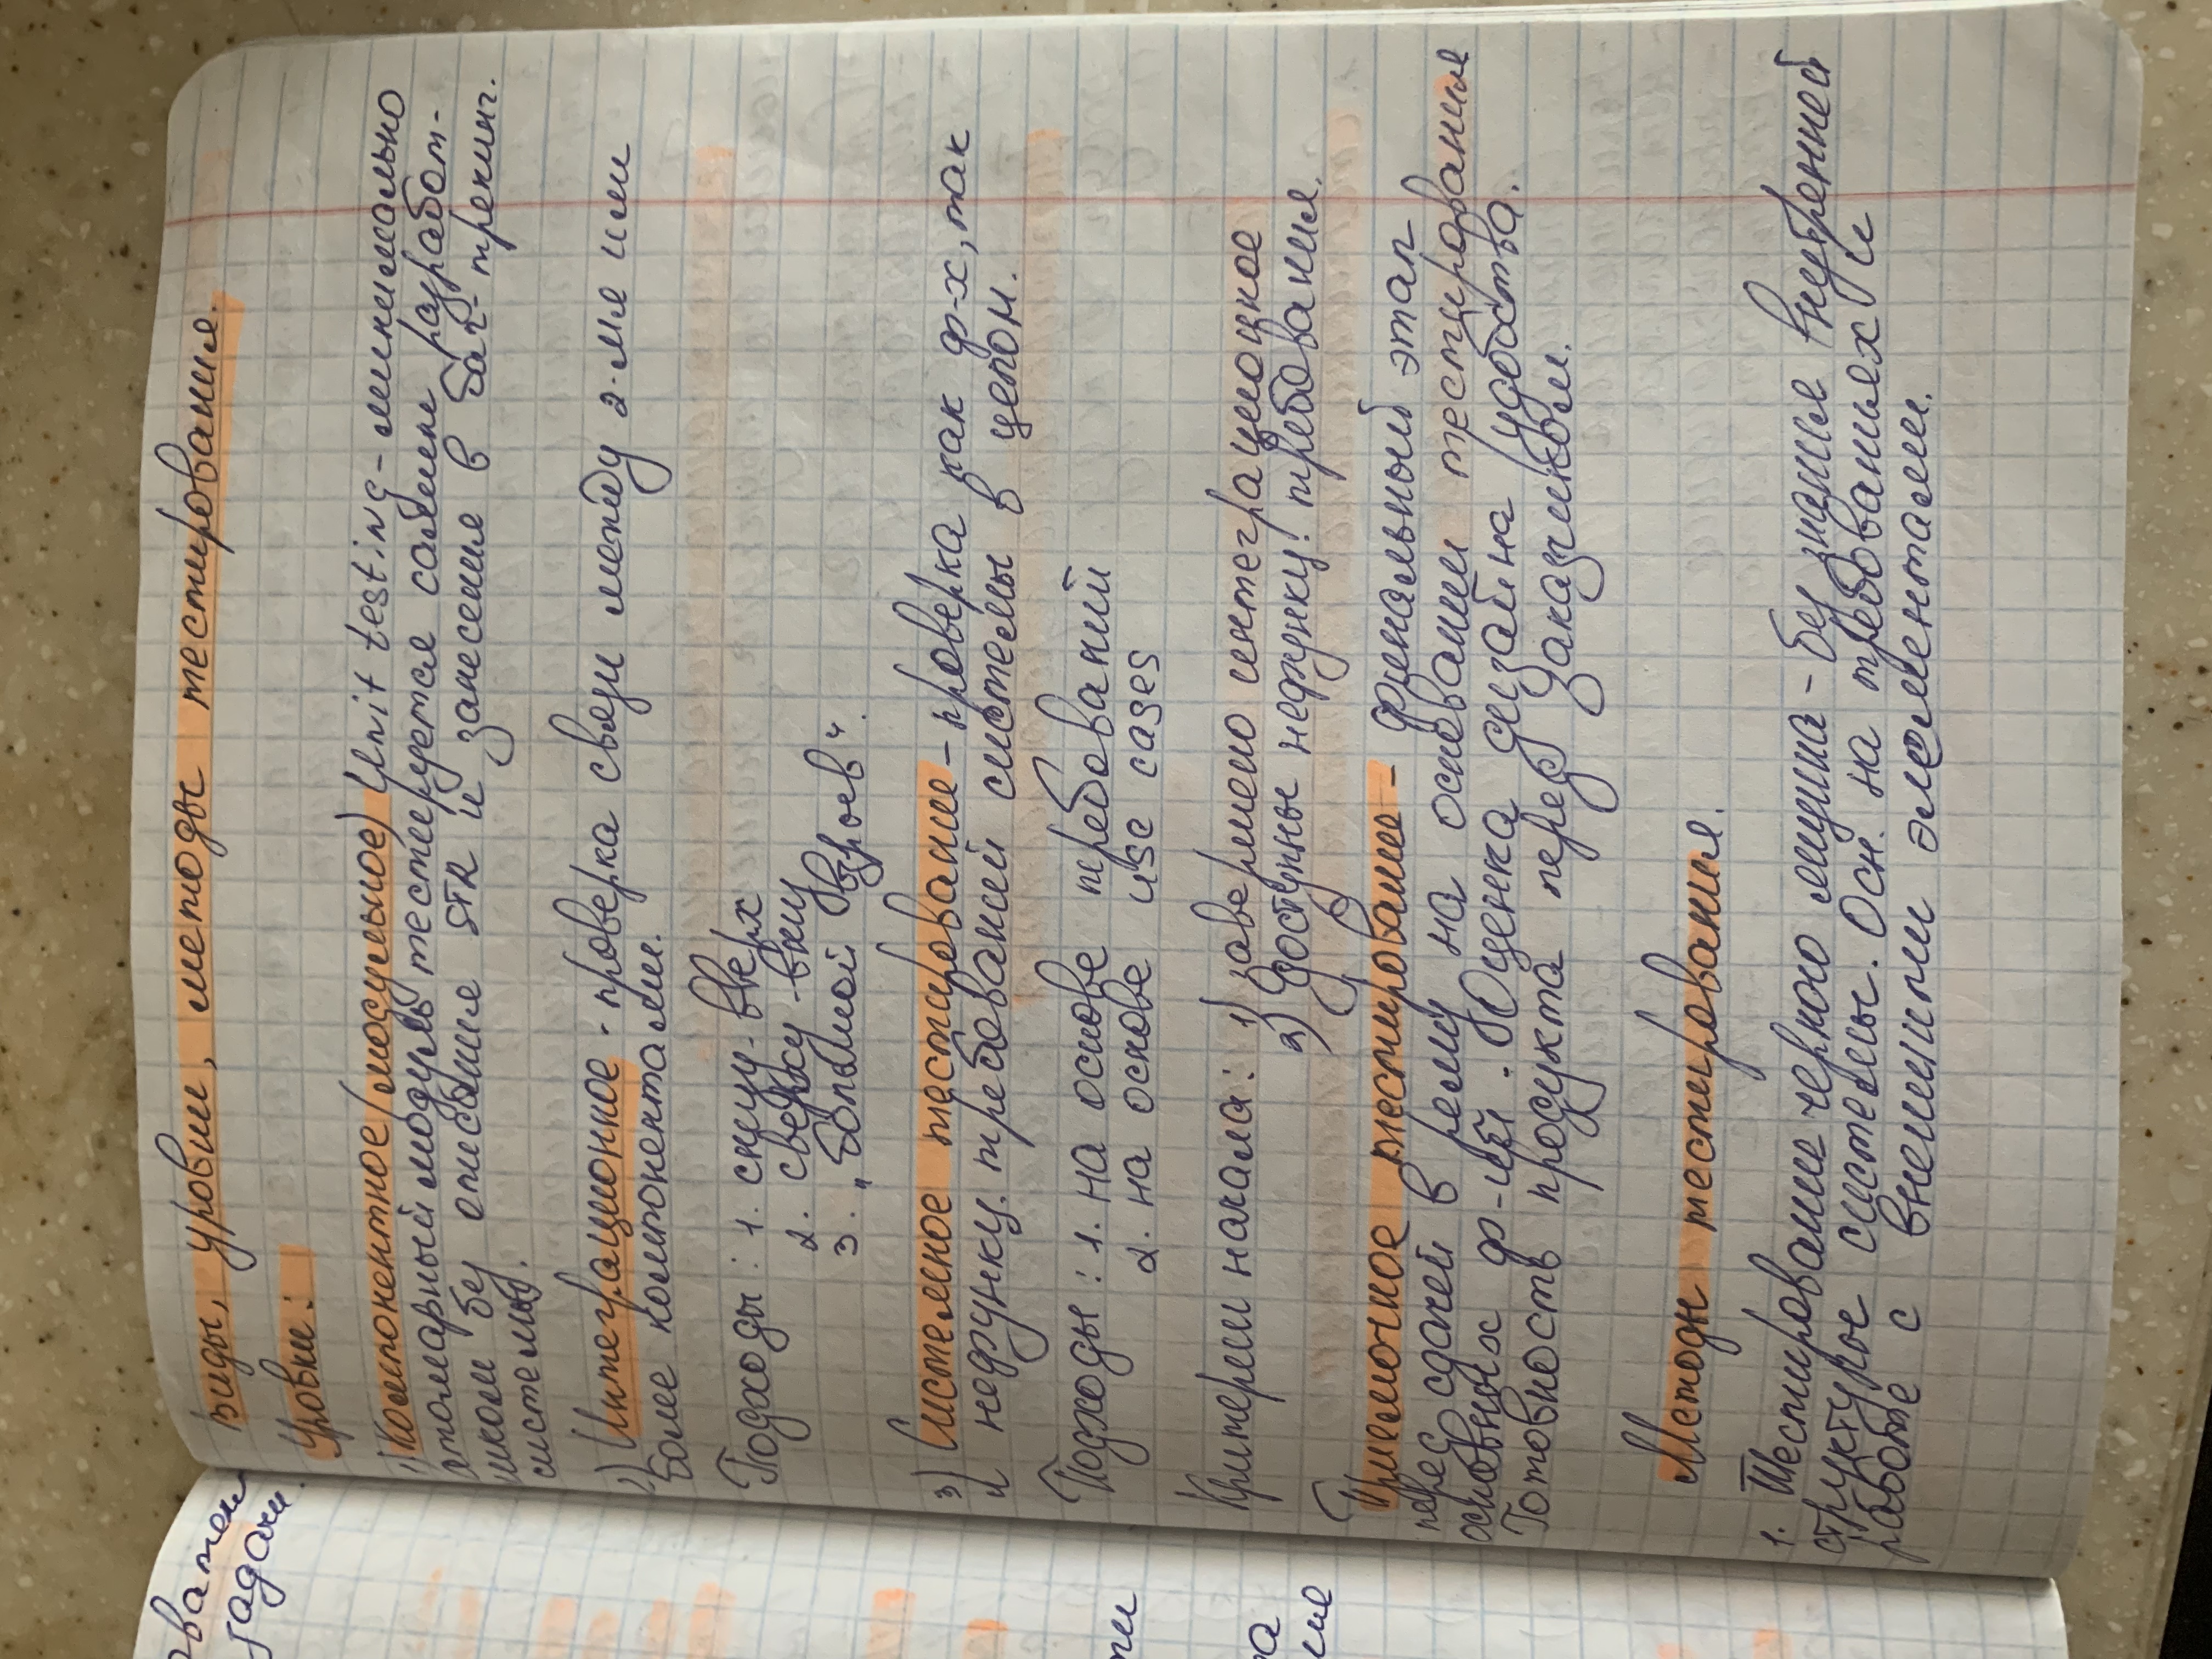 овател
задачи.
ти
а
ние
Виды, уровни, методы тестирования.
Уровни:
1) Компонентное (модульное) Unit testing - минимально
атомарный модуль тестируется самим разработ-
чиком без описания STR и занесения в баг-трекинг.
системы.
2) Интеграционное - проверка связи между 2-мя или
более компонентами.
Подходы: 1. снизу-вверх
2. сверху-вниз
3. „большой взрыв“.
3) Системное тестирование - проверка как ф-х, так
и нефункц. требований системы в целом.
Подходы: 1. на основе требований
2. на основе use cases
Критерии начала: 1) завершено интеграционное
2) доступны нефункц. требования.
Приемочное тестирование - финальный этап
перед сдачей в релиз на основании тестирования
основных ф-ий. Оценка дизайна / удобства.
Готовность продукта перед заказчиком.
Методы тестирования.
1. Тестирование черного ящика - без знания внутренней
структуры системы. Осн. на требованиях и
работе с внешними элементами.